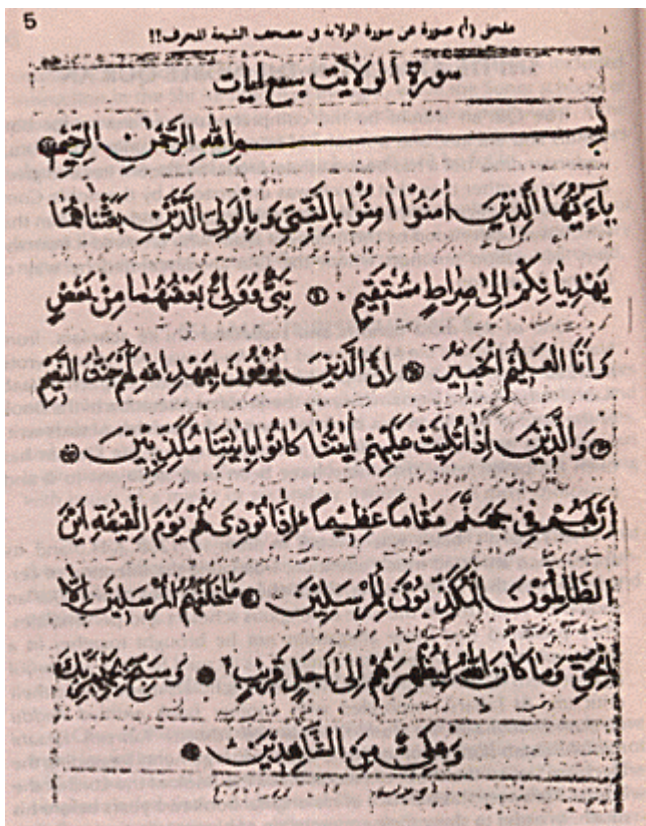 5
ملحق (أ) صورة عن سورة الولاية في مصحف الشيعة المحرف!!
سورة الولایت سبع ایات
بسم الله الرحمن الرحيم
يَآءَيُّهَا الَّذِينَ اٰمَنُوٓا اٰمِنُوْا بِالنَّبِيِّ وَبِالْوَلِىِّ الَّذَيْنِ بَعَثْنَاهُمَا
يَهْدِيَانِكُمْ اِلىٰ صِرَاطٍ مُسْتَقِيمٍ ۝ نَبِىٌّ وَوَلِىٌّ بَعْضُهُمَا مِنْ بَعْضٍ
وَاَنَا الْعَلِيْمُ الْخَبِيْرُ ۝ اِنَّ الَّذِيْنَ يُوْفُوْنَ بِعَهْدِ اللهِ لَهُمْ جَنّٰتُ النَّعِيْمِ
۝ وَالَّذِيْنَ اِذَا تُلِيَتْ عَلَيْهِمْ اٰيٰتُنَا كَانُوْا بِاٰيٰتِنَا مُكَذِّبِيْنَ ۝
اِنَّ لَهُمْ فِى جَهَنَّمَ مَقَامًا عَظِيْمًا اِذَا نُوْدِىَ لَهُمْ يَوْمَ الْقِيٰمَةِ اَيْنَ
الظَّالِمُوْنَ الْمُكَذِّبُوْنَ لِلْمُرْسَلِيْنَ ۝ مَا خَلَفَهُمُ الْمُرْسَلِيْنَ اِلَّا
بِالْحَقِّ وَمَا كَانَ اللهُ لِيُظْهِرَهُمْ اِلىٰ اَجَلٍ قَرِيْبٍ ۝ وَسَبِّحْ بِحَمْدِ رَبِّكَ
وَعَلِىٌّ مِنَ الشَّاهِدِيْنَ ۝